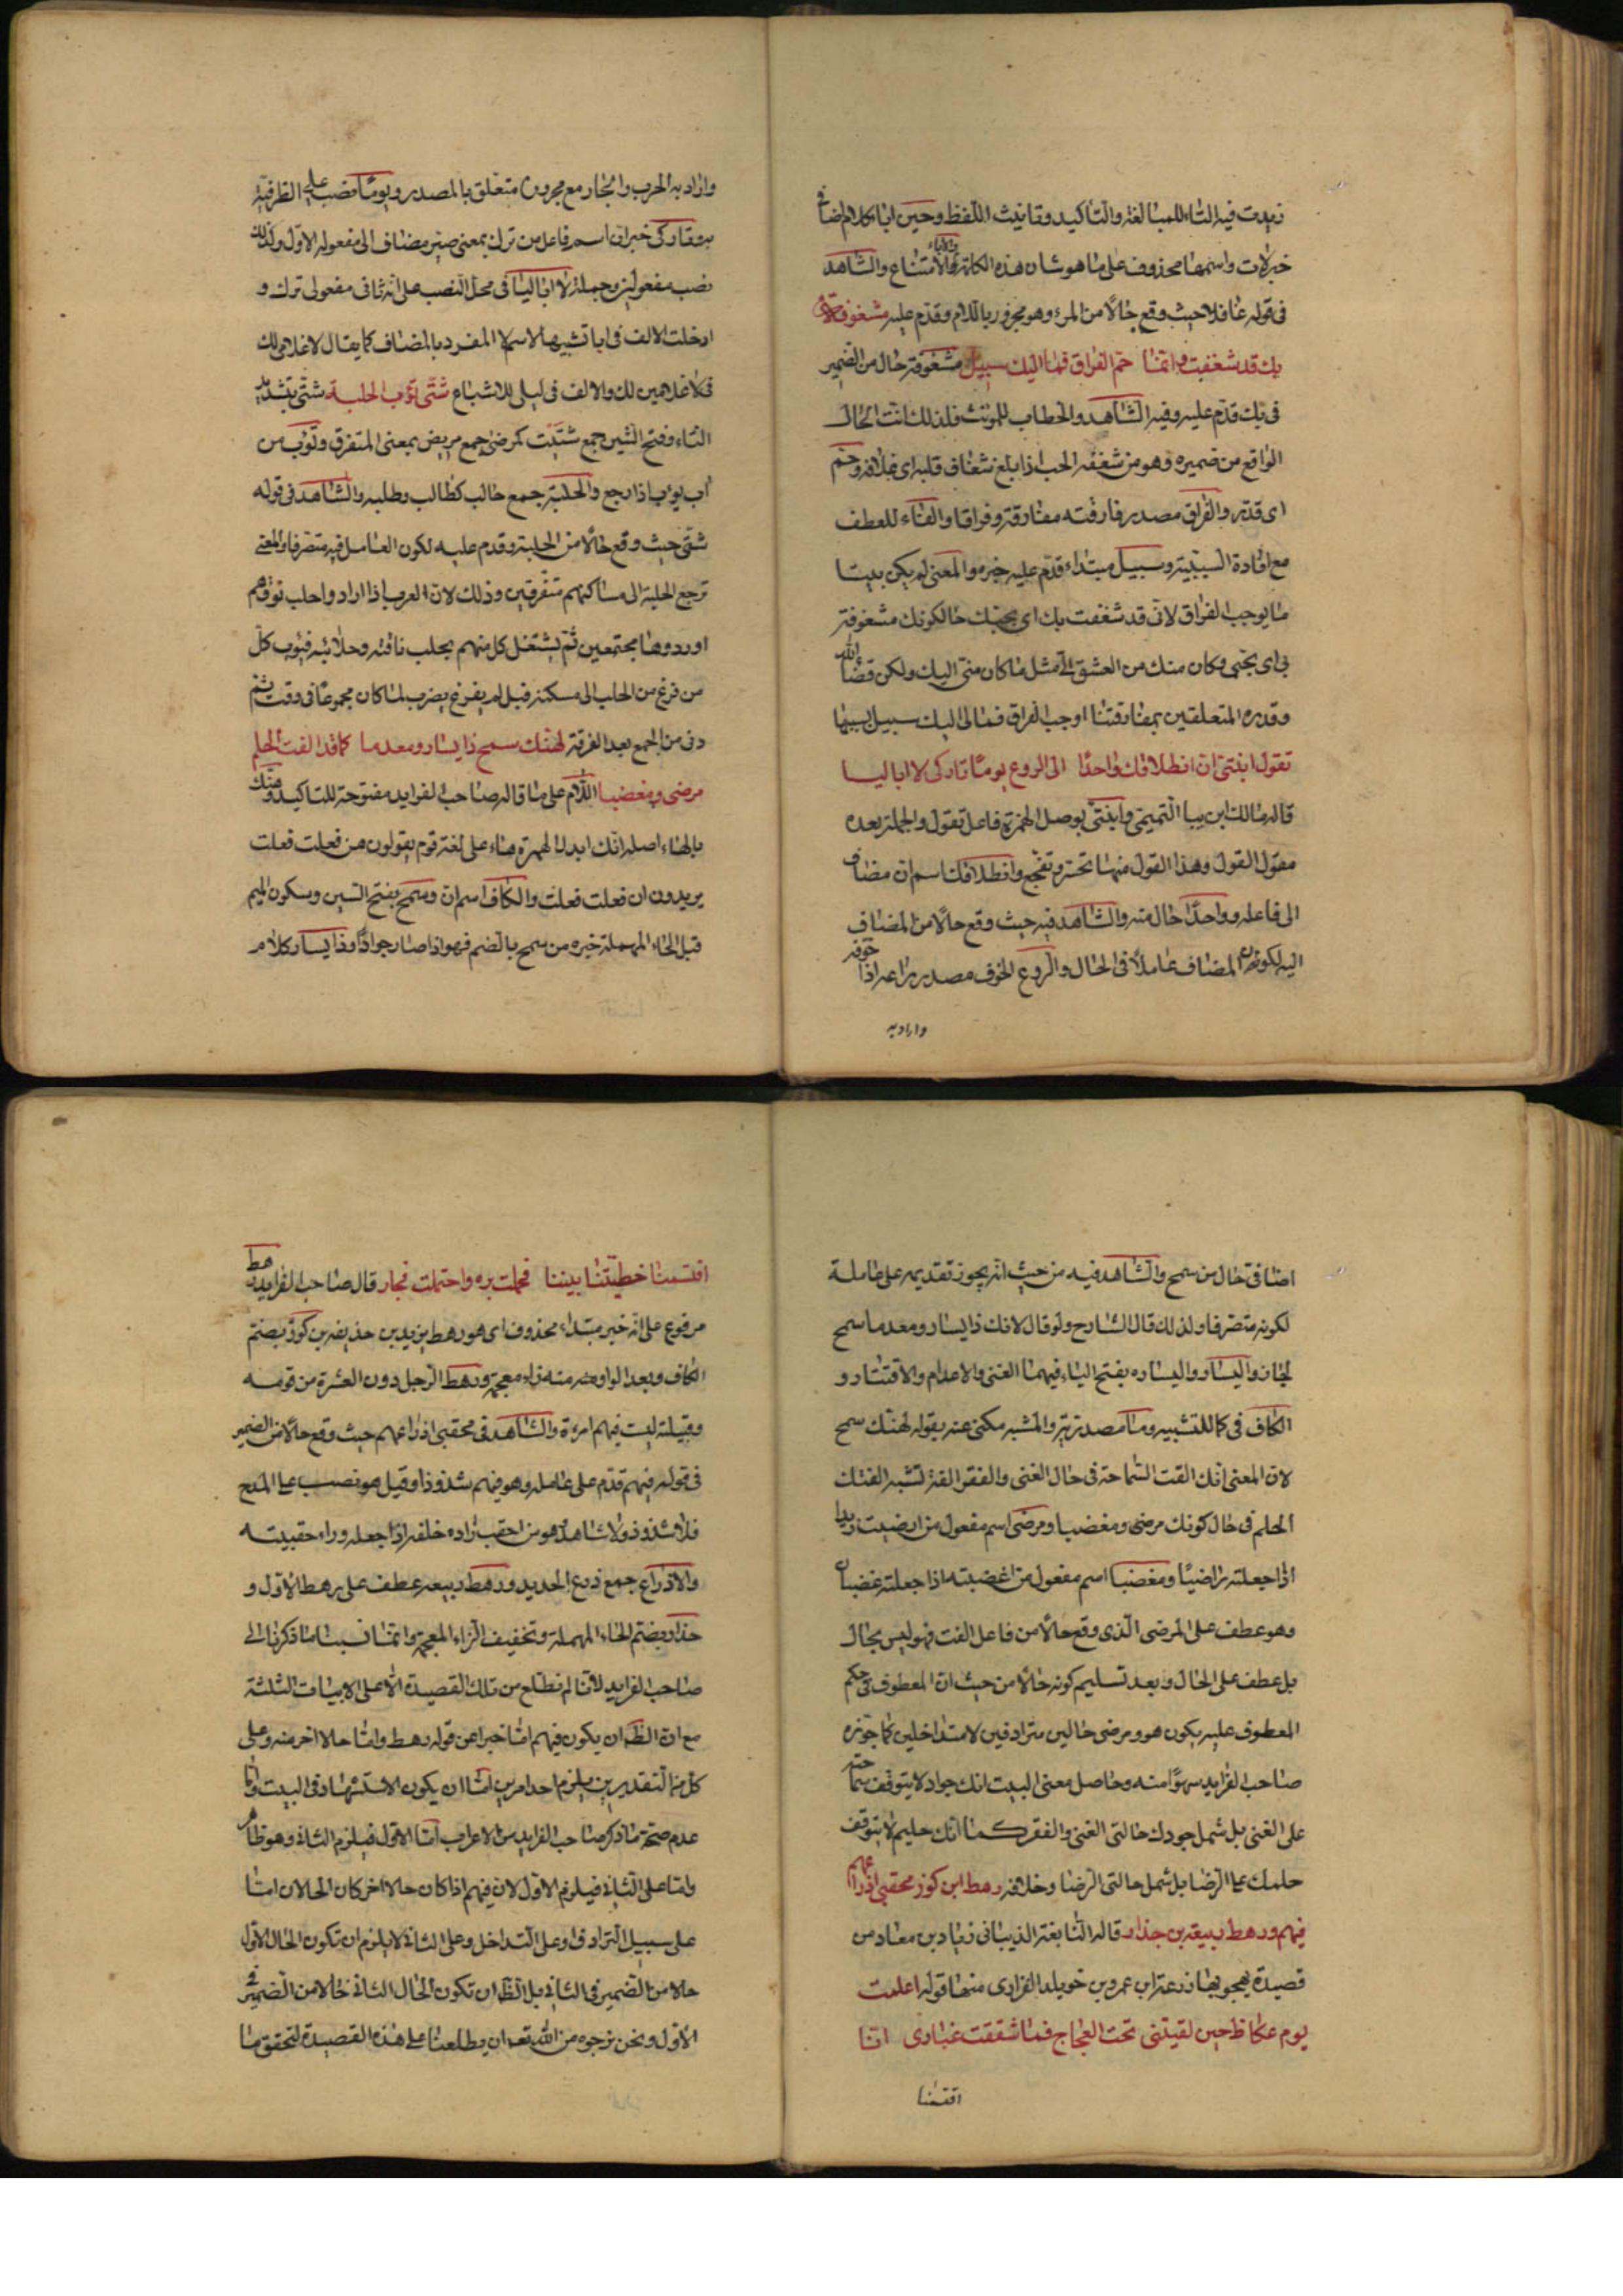 زيدت فيه التاء للمبالغة والتأكيد وتانيث اللفظ وحين اباء كلام اضافى
خبر لات واسمها محذوف على ما هو شان هذه الكلمة والاباء الامتناع والشاهد
فى قوله غافلا حيث وقع حالًا من المرء وهو مجرور باللام وقدم عليه مشغوفة
بك قد شغفت وانما حم الفراق فما اليك سبيل مشغوفة حال من الضمير
فى بك قدّم عليه وفيه الشاهد والخطاب للمونث فلذلك انث الحال
الواقع من ضميره وهو من شغفه الحب اذا بلغ شغاف قلبه اى غلافه وحم
اى قدّر والفراق مصدر فارقته مفارقة وفراقا والفاء للعطف
مع افادة السببية وسبيل مبتداء قدّم عليه خبره والمعنى لم يكن بيننا
ما يوجب الفراق لانى قد شغفت بك اى بحبك حالكونك مشغوفة
بى اى بحبى وكان منك من العشق الىّ مثل ما كان منى اليك ولكن قضاء الله
وقدره المتعلقين بمفارقتنا اوجب الفراق فما لى اليك سبيل بسببها
تقول ابنتى ان انطلاقك واحدًا الى الروع يومًا تاركى لا ابا ليا
قاله مالك ابن ريبا التميمى وابنتى بوصل الهمزة فاعل تقول والجملة بعده
مقول القول وهذا القول منها تحسر وتفجع وانطلاقك اسم ان مضاف
الى فاعله وواحدًا حال منه والشاهد فيه حيث وقع حالًا من المضاف
اليه لكون المضاف عاملًا فى الحال والروع الخوف مصدر راعه اذا خوفه
وارادبه
واراد به الحرب والجار مع مجروره متعلق بالمصدر ويومًا نصب على الظرفية
وتاركى خبر ان اسم فاعل من ترك بمعنى صير مضاف الى مفعوله الاول ولذلك
نصب مفعولين وجملة لا ابا ليا فى محل النصب على انه ثانى مفعولى ترك و
ادخلت الالف فى ابا تشبيها لاسم لا المفرد بالمضاف كما يقال لا غلامى لك
فى لا غلامين لك والالف فى ليا للاشباع شتى تؤب الحلبة شتى بتشديد
التاء وفتح الشين جمع شتيت كمرضى جمع مريض بمعنى المتفرق وتوب من
اب يوب اذا رجع والحلبة جمع حالب كطالب وطلبه والشاهد فى قوله
شتى حيث وقع حالًا من الحلبة وقدم عليه لكون العامل فيه متصرفا والمعنى
ترجع الحلبة الى مساكنهم متفرقين وذلك لان العرب اذا اراد واحلب نوقهم
اوردوها مجتمعين ثم يشتغل كل منهم بحلب ناقته وحلائبه فيؤب كل
من فرغ من الحلب الى مسكنه قبل لم يفرغ يضرب لما كان مجموعًا فى وقت ثم
دنى من الجمع بعد الفرقة لهنك سمح ذا يسار ومعدما كما قد الفت الحلم
مرضى ومغضبا اللام على ما قاله صاحب الفرايد مفتوحة للتاكيد وهنك
بالهاء اصله انك ابدل الهمزة هاء على لغة قوم يقولون هن فعلت فعلت
يريدون ان فعلت فعلت والكاف اسم ان وسمح بفتح السين وسكون الميم
قبل الحاء المهملة خبره من سمح بالضم فهو اذا صار جوادًا وذا يسار كلام
اضافى حال من سمح والشاهد فيه من حيث انه يجوز تقديمه على عامله
لكونه متصرفا ولذلك قال الشارح ولو قال لانك ذا يسار ومعدما سمح
لجاز واليسار واليساره بفتح الياء فيهما الغنى والاعدام والافتقار و
الكاف فى كما للتشبيه وما مصدرية والمشبه مكنى عنه بقوله لهنك سمح
لان المعنى انك الفت السماحة فى حال الغنى والفقر الفة تشبه الفتك
الحلم فى حال كونك مرضى ومغضبا ومرضى اسم مفعول من ارضيت زيدا
اذا جعلته راضيًا ومغضبا اسم مفعول من اغضبته اذا جعلته غضبان
وهو عطف على المرضى الذى وقع حالًا من فاعل الفت فهو ليس بحال
بل عطف على الحال وبعد تسليم كونه حالًا من حيث ان المعطوف فى حكم
المعطوف عليه يكون هو ومرضى حالين مترادفين لا متداخلين كما جوّزه
صاحب الفرايد سهوًا منه وحاصل معنى البيت انك جواد لا يتوقف سماحته
على الغنى بل شمل جودك حالتى الغنى والفقر كما انك حليم لا يتوقف
حلمك على الرضا بل شمل حالتى الرضا وخلافه رهط ابن كوز محقبى ادراعهم
فيهم ورهط ربيعة بن حذار قاله النابغة الذبيانى زياد بن معاد من
قصيدة يهجو بها زرعة ابن عمرو بن خويلد الفزارى منها قوله اعلمت
يوم عكاظ حين لقيتنى تحت العجاج فما شققت غبارى انا
اقتسمنا
اقتسمنا خطيتنا بيننا فحملت بره واحتملت فجار قال صاحب الفرايد رهط
مرفوع على انه خبر مبتداء محذوف اى هو رهط يزيد بن حذيفه بن كوز بضم
الكاف وبعد الواو منه زاء معجمة ورهط الرجل دون العشرة من قومه
وقبيلته ليت فيهم امرءة والشاهد فى محقبى ادراعهم حيث وقع حالًا من الضمير
فى قوله فيهم قدّم على عامله وهو فيهم شذوذا وقيل هو نصب على المدح
فلا شذوذ ولا شاهد هو من احقب زاده خلفه اذا جعله وراء حقيبته
والادراع جمع درع الحديد ورهط ربيعه عطف على رهط الاول و
حذار بضم الحاء المهملة وتخفيف الزاء المعجمة وانما نسبنا ما ذكرنا الى
صاحب الفرايد لانا لم نطلع من تلك القصيدة الا على الابيات الثلثة
مع ان الظ ان يكون فيهم اما خبرا عن قوله رهط واما حالا اخر منه وعلى
كل من التقديرين يلزم احد امرين اما ان يكون الاستشهاد فى البيت واما
عدم صحة ما ذكر صاحب الفرايد من الاعراب اما الاول فيلزم الثانى وهو ظاهر
واما على الثانى فيلزم الاول لان فيهم اذا كان حالا اخر كان الحالان اما
على سبيل الترادف او على التداخل وعلى الثانى لا يلزم ان تكون الحال الاول
حالا من الضمير فى الثانى بل الظ ان تكون الحال الثانى حالا من الضمير فى
الاول ونحن نرجوه من الله تعه ان يطلعنا على هذه القصيدة لتحقق ما